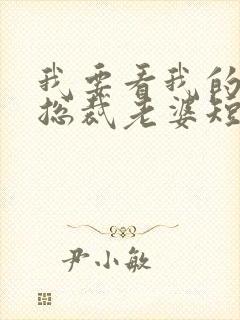 我要看我的
总裁老婆短
尹小敏